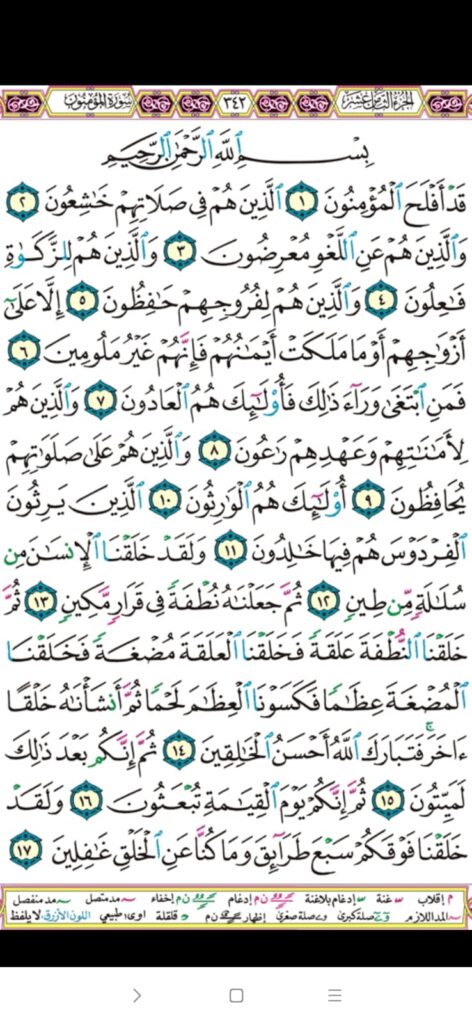 الجزء الثامن عشر ٣٤٢ سورة المؤمنون
بِسْمِ ٱللَّهِ ٱلرَّحْمَٰنِ ٱلرَّحِيمِ
قَدْ أَفْلَحَ ٱلْمُؤْمِنُونَ ١ ٱلَّذِينَ هُمْ فِى صَلَاتِهِمْ خَٰشِعُونَ ٢
وَٱلَّذِينَ هُمْ عَنِ ٱللَّغْوِ مُعْرِضُونَ ٣ وَٱلَّذِينَ هُمْ لِلزَّكَوٰةِ
فَٰعِلُونَ ٤ وَٱلَّذِينَ هُمْ لِفُرُوجِهِمْ حَٰفِظُونَ ٥ إِلَّا عَلَىٰٓ
أَزْوَٰجِهِمْ أَوْ مَا مَلَكَتْ أَيْمَٰنُهُمْ فَإِنَّهُمْ غَيْرُ مَلُومِينَ ٦
فَمَنِ ٱبْتَغَىٰ وَرَآءَ ذَٰلِكَ فَأُو۟لَٰٓئِكَ هُمُ ٱلْعَادُونَ ٧ وَٱلَّذِينَ هُمْ
لِأَمَٰنَٰتِهِمْ وَعَهْدِهِمْ رَٰعُونَ ٨ وَٱلَّذِينَ هُمْ عَلَىٰ صَلَوَٰتِهِمْ
يُحَافِظُونَ ٩ أُو۟لَٰٓئِكَ هُمُ ٱلْوَٰرِثُونَ ١٠ ٱلَّذِينَ يَرِثُونَ
ٱلْفِرْدَوْسَ هُمْ فِيهَا خَٰلِدُونَ ١١ وَلَقَدْ خَلَقْنَا ٱلْإِنسَٰنَ مِن
سُلَٰلَةٍ مِّن طِينٍ ١٢ ثُمَّ جَعَلْنَٰهُ نُطْفَةً فِى قَرَارٍ مَّكِينٍ ١٣ ثُمَّ
خَلَقْنَا ٱلنُّطْفَةَ عَلَقَةً فَخَلَقْنَا ٱلْعَلَقَةَ مُضْغَةً فَخَلَقْنَا
ٱلْمُضْغَةَ عِظَٰمًا فَكَسَوْنَا ٱلْعِظَٰمَ لَحْمًا ثُمَّ أَنشَأْنَٰهُ خَلْقًا
ءَاخَرَ ۚ فَتَبَارَكَ ٱللَّهُ أَحْسَنُ ٱلْخَٰلِقِينَ ١٤ ثُمَّ إِنَّكُم بَعْدَ ذَٰلِكَ
لَمَيِّتُونَ ١٥ ثُمَّ إِنَّكُمْ يَوْمَ ٱلْقِيَٰمَةِ تُبْعَثُونَ ١٦ وَلَقَدْ
خَلَقْنَا فَوْقَكُمْ سَبْعَ طَرَآئِقَ وَمَا كُنَّا عَنِ ٱلْخَلْقِ غَٰفِلِينَ ١٧
م إقلاب غنة إدغام بلاغنة ن م إدغام ن م إخفاء مد متصل مد منفصل
المد اللازم صلة كبرى صلة صغرى إظهار ن م قلقلة اوى طبيعي اللون الأزرق لا يلفظ